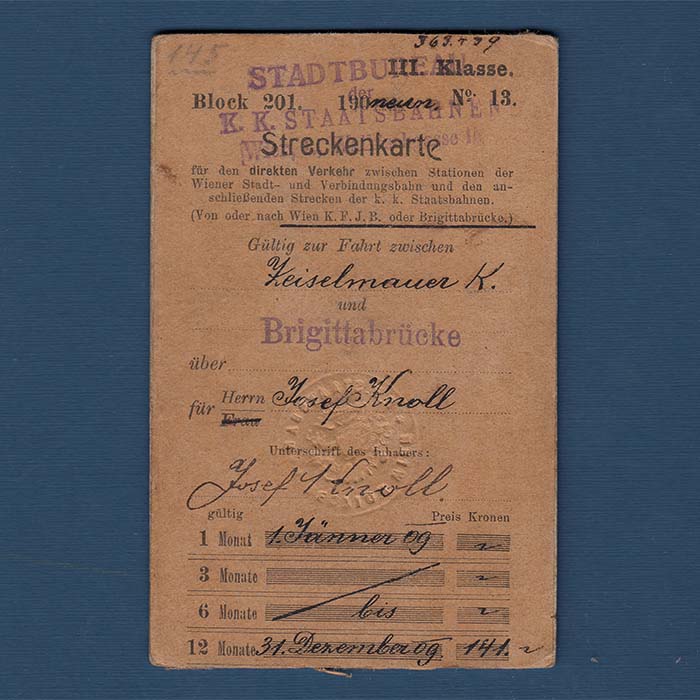 145
363.479
STADTBUREAU
III. Klasse.
der
Block 201. 190neun. No. 13.
K. K. STAATSBAHNEN
Streckenkarte
für den direkten Verkehr zwischen Stationen der
Wiener Stadt- und Verbindungsbahn und den an-
schließenden Strecken der k. k. Staatsbahnen.
(Von oder nach Wien K. F. J. B. oder Brigittabrücke.)
Gültig zur Fahrt zwischen
Zeiselmauer K.
und
Brigittabrücke
über
für Herrn Josef Knoll
Frau
Unterschrift des Inhabers:
Josef Knoll.
gültig Preis Kronen
1 Monat 1. Jänner 09
3 Monate
6 Monate bis
12 Monate 31. Dezember 09 141.